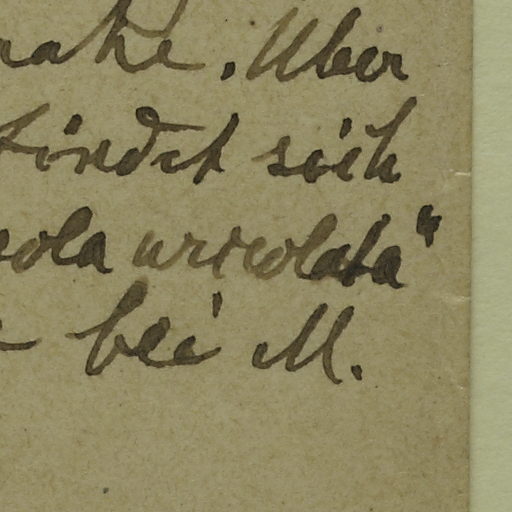 nahe. Über
findet sich
eola urceolata"
bei M.